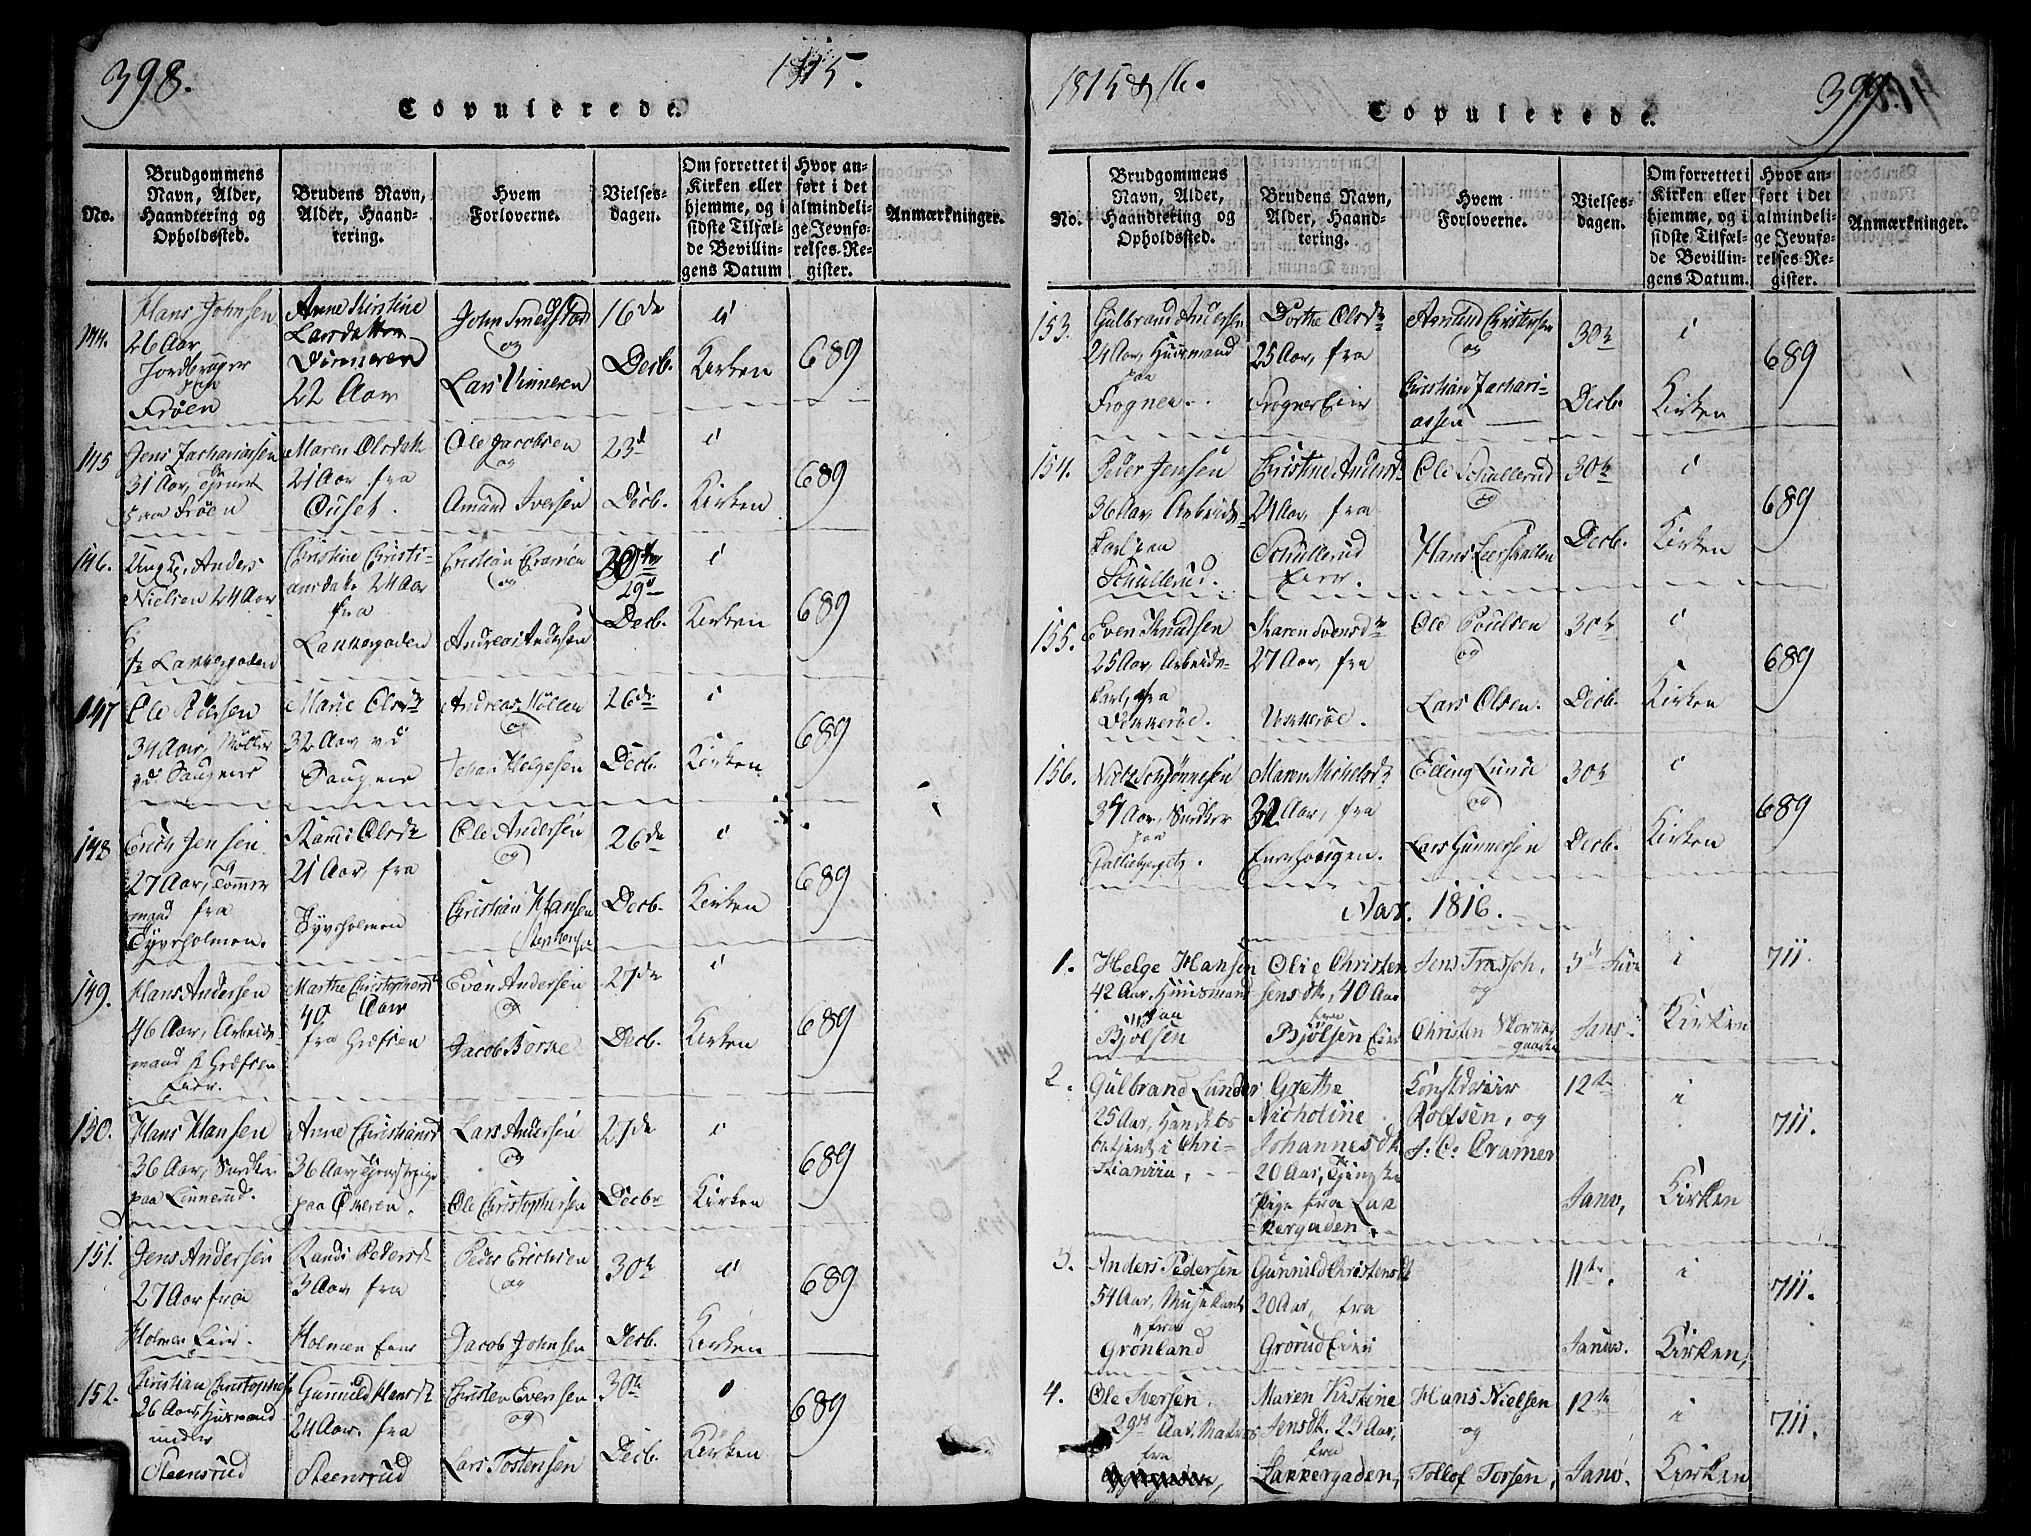 398.
1815.
Copulerede.
No.
Brudgommens Navn, Alder, Haandtering og Opholdssted.
Brudens Navn, Alder, Haandtering.
Hvem Forloverne.
Vielsesdagen.
Om forrettet i Kirken eller hjemme, og i sidste Tilfælde Bevillingens Datum
Hvor anført i det almindelige Jevnførelses-Register.
Anmærkninger.
144.
Hans Johnsen
26 Aar
Jordbruger
paa
Frøen
Anne Kirstine
Larsdatter
Vinneren
22 Aar
John Smedstad
og
Lars Vinneren
16de
Decb.
i
Kirken
689
145
Jens Zachariassen
31 Aar,
paa Frøen
Maren Olsdatt
21 Aar fra
Ouset.
Ole Jacobsen
og
Amund Iversen
23d
Decb.
i
Kirken
689
146.
Ungk. Anders
Nielsen 24 Aar
fr Lakkegaden
Christine Christi-
ansdatr 24 Aar
fra
Lakkegaden
Cristian
og
Andreas Andersen
29d
Decb.
i
Kirken
689
147
Ole Pedersen
34 Aar, Møller
vd Saugene
Marie Olsdtr
32 Aar, vd
Saugene
Andreas Møllen
og
Johan Helgesen
26de
Decb.
i
Kirken
689
148
Erich Jensen
27 Aar, Tømmer
mand fra
Tyvholmen.
Randi Olsdtr
21 Aar, fra
Tyvholmen
Ole Andersen
og
Christian Hansen
26de
Decb.
i
Kirken
689
149.
Hans Andersen
46 Aar, Arbeids-
mand fr Grefsen
Eier.
Marthe Christophersdr
40 Aar
fra Grefsen
Even Andersen
og
Jacob Borse
27de
Decb.
i
Kirken
689
150.
Hans Hansen
36 Aar, Snedker
paa Linnerud.
Anne Christiansd
36 Aar, Tjenstepige
paa Økeren.
Lars Andersen
og
Ole Christophersen
27de
Decbr
i
Kirken
689
151.
Jens Andersen
27 Aar fra
Holmen Eier.
Randi Pedersdr
3 Aar, fra
Holmen Eier
Peder Erichsen
og
Jacob Johnsen
30te
Decb.
i
Kirken
689
152.
Christian Christophers
26 Aar, Huusmand
under
Steensrud
Gunnild Hansdr
24 Aar, fra
Steensrud
Christen Evensen
og
Lars Tostensen
30te
Decb.
i
Kirken
689
1815 & 16.
399.
Copulerede.
No.
Brudgommens Navn, Alder, Haandtering og Opholdssted.
Brudens Navn, Alder, Haandtering.
Hvem Forloverne.
Vielsesdagen.
Om forrettet i Kirken eller hjemme, og i sidste Tilfælde Bevillingens Datum.
Hvor anført i det almindelige Jevnførelses-Register.
Anmærkninger.
153.
Gulbrand Andersen
24 Aar, Huusmand
paa
Frogner.
Dorthe Olsdtr
25 Aar, fra
Frogner Eier
Amund Christensen
og
Christian Zachari-
assen
30te
Decb.
i
Kirken
689
154.
Peder Jensen
36 Aar, Arbeids-
karl paa
Schullerud.
Christine Andersd
24 Aar, fra
Schullerud
Eier.
Ole Schullerud
og
Hans Leerskallen
30te
Decb.
i
Kirken
689
155.
Even Knudsen
25 Aar, Arbeids-
karl, fra
Vekkerøe.
Karen Svensdtr
27 Aar, fra
Vekkerøe.
Ole Poulsen
og
Lars Olsen.
30te
Decb.
i
Kirken
689
156.
Niels Schjønnesen
34 Aar, Snedker
paa
Maren Michelsdr
32 Aar, fra
Enerhougen.
Elling Lund
og
Lars Gunnersen
30te
Decb.
i
Kirken
689
Aar. 1816.
1.
Helge Hansen
42 Aar, Huusmand
paa
Bjølsen
Olie Christen
sensdr, 40 Aar
fra
Bjølsen Eier
Jens Traschh,
og
Christen
i
Kirken
711.
2.
Gulbrand Lunder
25 Aar, Handels
betjent i Chri-
stiania,
Grethe
Nicholine
Johannesdr
20 Aar, Tjeneste
Pige fra Lak
kergaden.
Rolfsen, og
J. C. Cramer
12te
Janv,
i
Kirken
711.
3.
Anders Pedersen
54 Aar, Musikant
fra
Grønland
Gunnild Christensdr
20 Aar, fra
Grorud Eier
11te.
Januv.
i
Kirken,
711.
4.
Ole Iversen
29 Aar, Matros
fra
Maren Kistine
Jensdr. 23 Aar,
fra
Lakkergaden,
Hans Nielsen
og
Tollof Torsen,
12te
Janv.
i
Kirken
711.